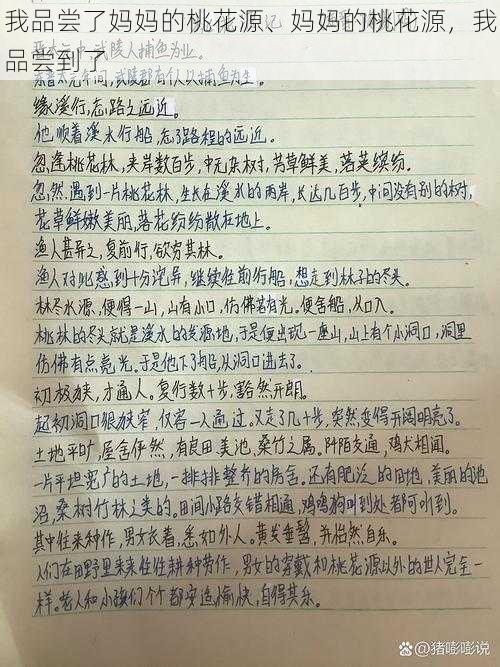 我品尝了妈妈的桃花源、妈妈的桃花源，我
品尝到了
记
武陵人捕鱼为业。
缘溪行，忘路之远近。
他顺着溪水行船，忘了路程的远近。
忽逢桃花林，夹岸数百步，中无杂树，芳草鲜美，落英缤纷。
忽然遇到一片桃花林，生长在溪水的两岸，长达几百步，中间没有别的树，
花草鲜嫩美丽，落花纷纷散在地上。
渔人甚异之，复前行，欲穷其林。
渔人对此感到十分诧异，继续往前行船，想走到林子的尽头。
林尽水源，便得一山，山有小口，仿佛若有光。便舍船，从口入。
桃林的尽头就是溪水的发源地，于是便出现一座山，山上有个小洞口，洞里
仿佛有点亮光。于是他下了船，从洞口进去了。
初极狭，才通人。复行数十步，豁然开朗。
起初洞口很狭窄，仅容一人通过。又走了几十步，突然变得开阔明亮了。
土地平旷，屋舍俨然，有良田美池，桑竹之属。阡陌交通，鸡犬相闻。
一片平坦宽广的土地，一排排整齐的房舍。还有肥沃的田地，美丽的池
沼，桑树竹林之类的。田间小路交错相通，鸡鸣狗叫到处都可听到。
其中往来种作，男女衣着，悉如外人。黄发垂髫，并怡然自乐。
人们在田野里来来往往耕种劳作，男女的穿戴和桃花源以外的世人完全一
样。老人和小孩们个个都安适愉快，自得其乐。
@猪嘭嘭说